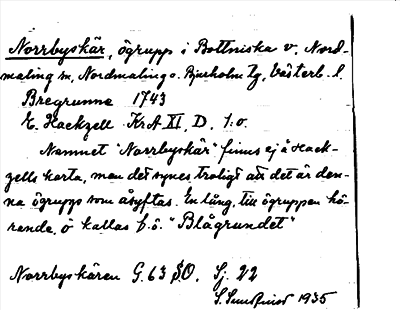 Norrbyskär, ögrupp i Bottniska v. Nord-
maling sn, Nordmaling o. Bjurholm tg, Västerb. l.
Bregrunne 1743
E. Hackzell KrA XI, D. 1:o.
Namnet "Norrbyskär" finns ej å Hack-
zells karta, men det synes troligt att det är den-
na ögrupp som åsyftas. En lång, till ögruppen hö-
rande, ö kallas f.ö. "Blågrundet"
Norrbyskären G. 63 S.O. Sj. 22
1935